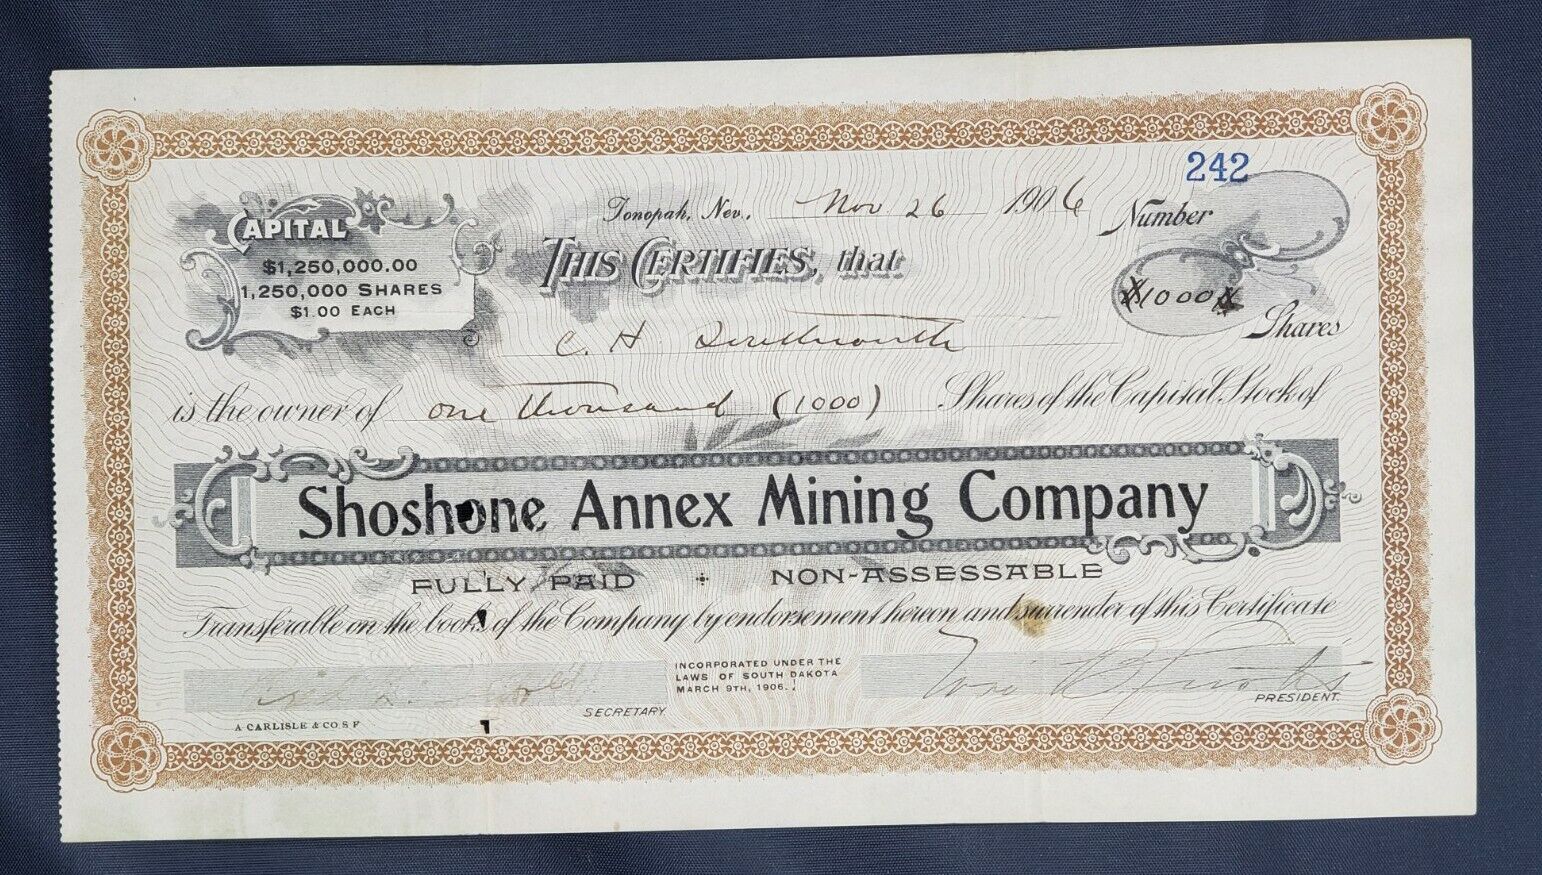 242
Tonopah, Nev. Nov 26 1906 Number
CAPITAL
$1,250,000.00
1,250,000 SHARES
$1.00 EACH
THIS CERTIFIES, that
1000 Shares
C. H.
is the owner of one thousand (1000) Shares of the Capital Stock of
Shoshone Annex Mining Company
FULLY PAID + NON-ASSESSABLE
Transferable on the books of the Company by endorsement hereon and surrender of this Certificate
INCORPORATED UNDER THE
LAWS OF SOUTH DAKOTA
MARCH 9TH, 1906.
SECRETARY.
PRESIDENT.
A CARLISLE & CO. S F